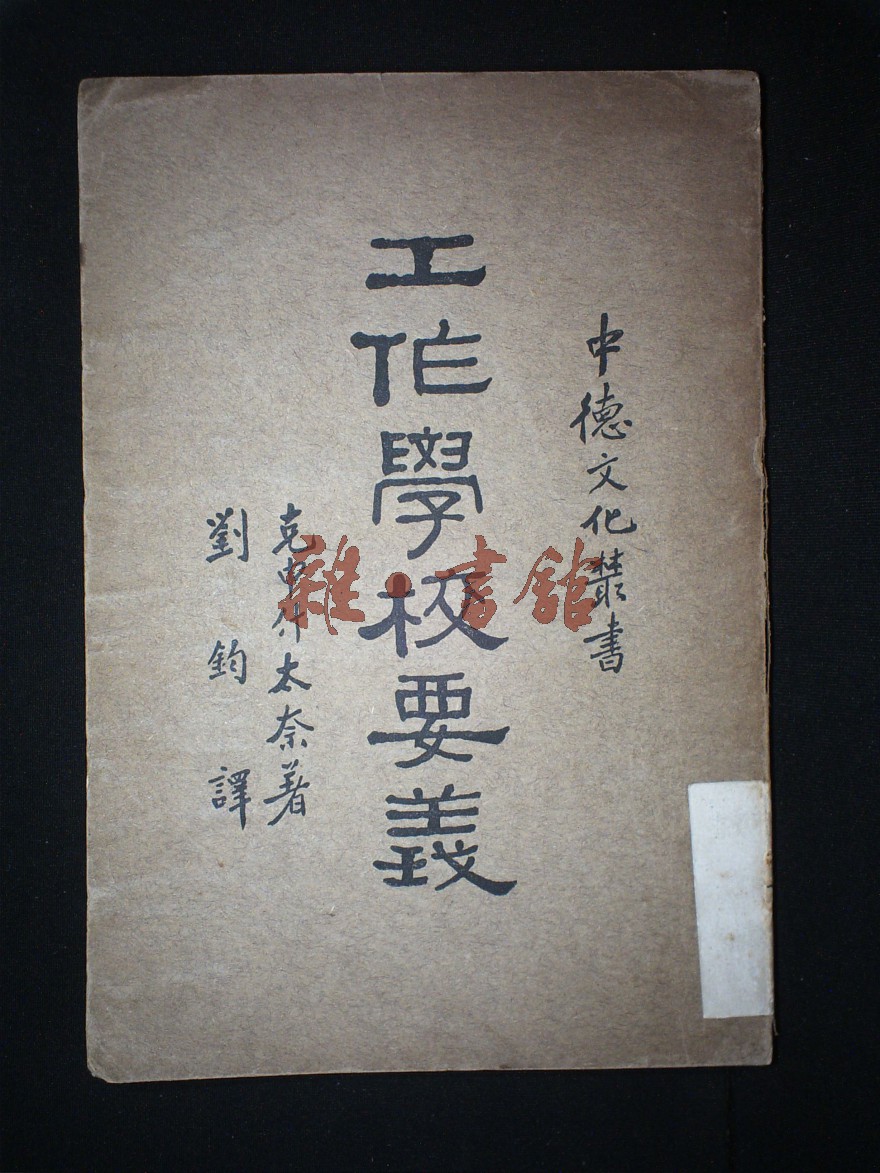 中德文化叢書
工作學校要義
克申什太奈著
劉鈞譯
雜·書館